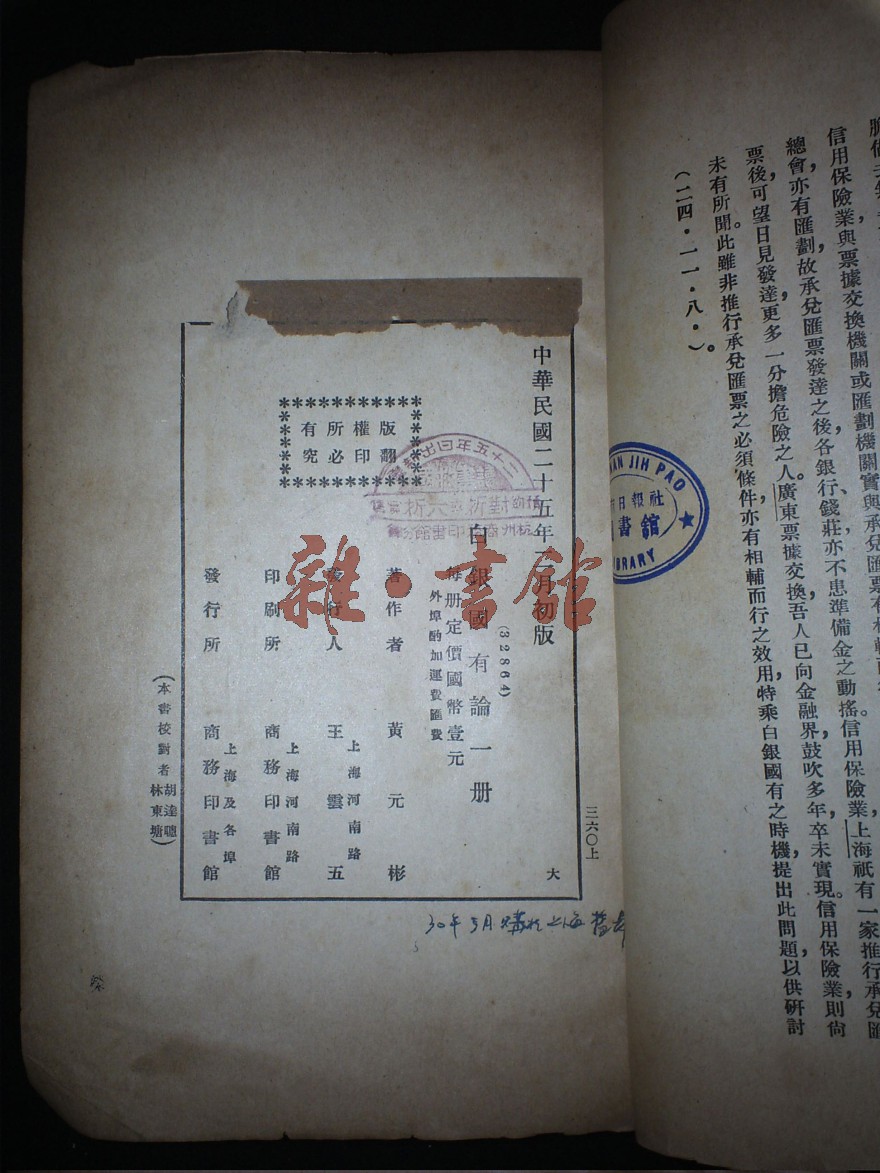 信用保險業與票據交換機關或匯劃機關實與承兌匯票有相輔
總會，亦有匯劃，故承兌匯票發達之後各銀行、錢莊亦不患準備金之動搖。信用保險業，上海祇有一家推行承兌匯
票後，可望日見發達，更多一分擔危險之人。廣東票據交換，吾人已向金融界鼓吹多年，卒未實現。信用保險業則尙
未有所聞。此雖非推行承兌匯票之必須條件，亦有相輔而行之效用，特乘白銀國有之時機，提出此問題，以供研討。
（二四・一一・八・）
JIH PAO
日報社
書館
三六〇上
中華民國二十五年 月初版
大
(32864)
白銀國有論一册
每册定價國幣壹元
外埠酌加運費匯費
版權所有
翻印必究
著作者 黃元彬
發行人 王雲五
上海河南路
印刷所 商務印書館
上海河南路
發行所 商務印書館
上海及各埠
（本書校對者 胡達聰 林東塘）
30年5月購於上海
雜・書館